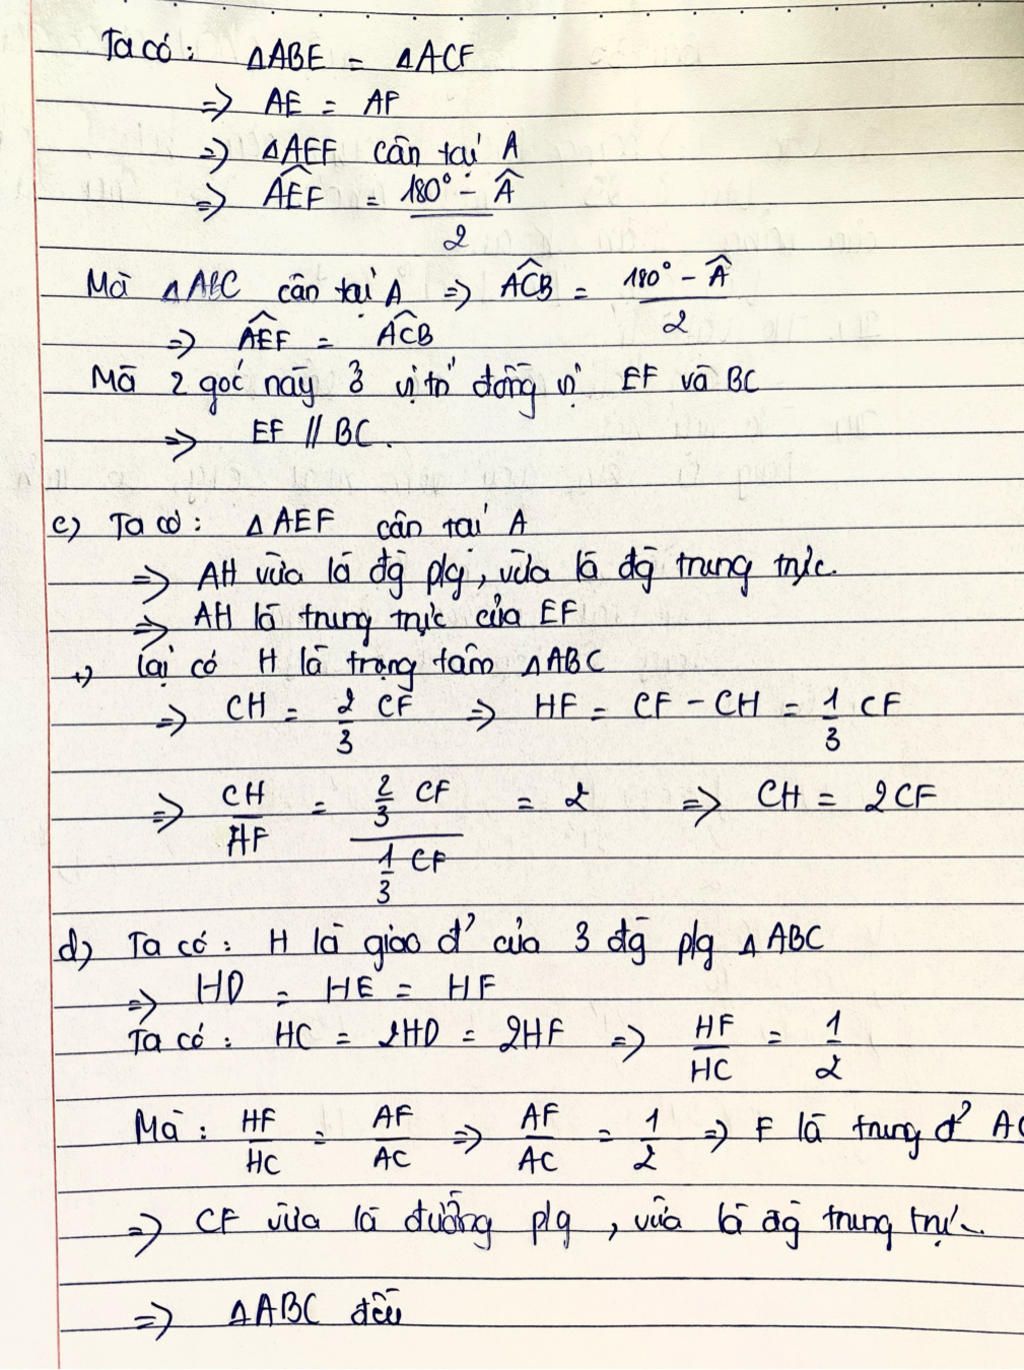 Ta có: ΔABE = ΔACF
=> AE = AF
=> ΔAEF cân tại A
=> \widehat{AEF} = \frac{180° - \widehat{A}}{2}
Mà ΔABC cân tại A => \widehat{ACB} = \frac{180° - \widehat{A}}{2}
=> \widehat{AEF} = \widehat{ACB}
Mà 2 góc này ở vị trí đồng vị EF và BC
=> EF // BC.
c) Ta có: ΔAEF cân tại A
=> AH vừa là đg plg, vừa là đg trung trực.
=> AH là trung trực của EF
+) Lại có H là trọng tâm ΔABC
=> CH = \frac{2}{3} CF => HF = CF - CH = \frac{1}{3} CF
=> \frac{CH}{HF} = \frac{\frac{2}{3} CF}{\frac{1}{3} CF} = 2 => CH = 2CF
d) Ta có: H là giao đ' của 3 đg plg ΔABC
=> HD = HE = HF
Ta có: HC = 2HD = 2HF => \frac{HF}{HC} = \frac{1}{2}
Mà: \frac{HF}{HC} = \frac{AF}{AC} => \frac{AF}{AC} = \frac{1}{2} => F là trung đ' AC
=> CF vừa là đường plg, vừa là đg trung trực
=> ΔABC đều